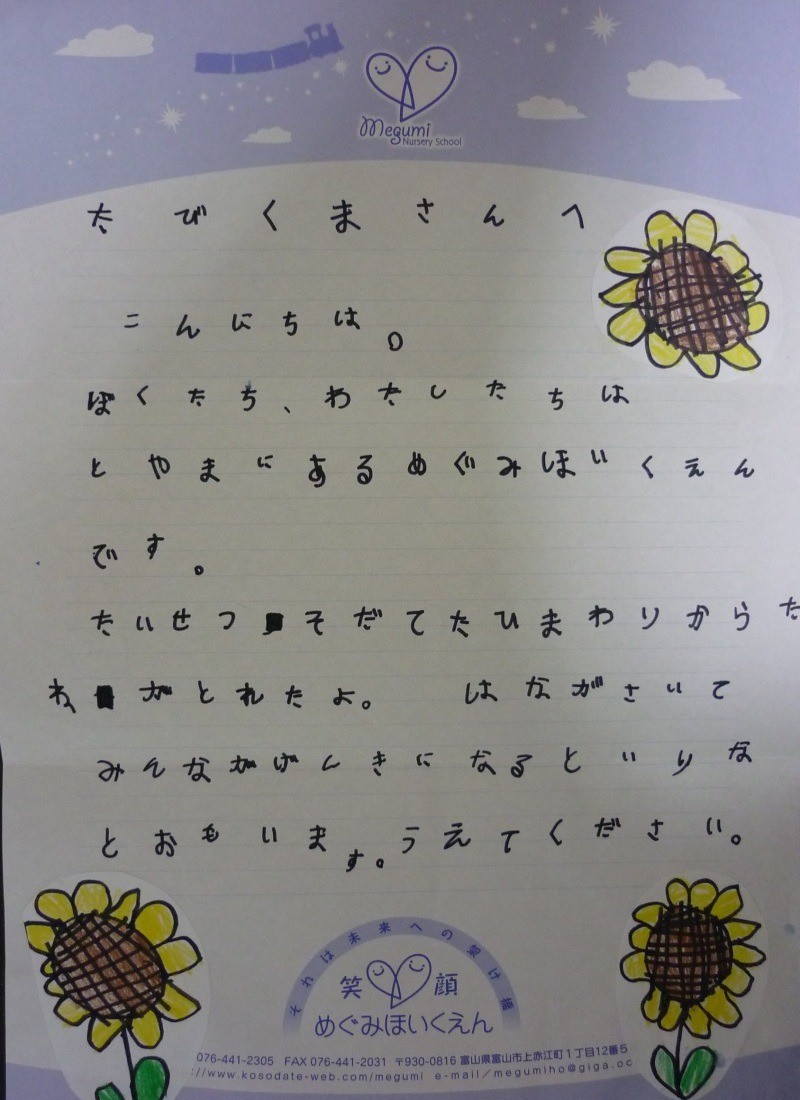 Megumi
Nursery School
たびくまさんへ
こんにちは。
ぼくたち、わたしたちは
とやまにあるめぐみほいくえん
です。
たいせつ そだてたひまわりからた
ね がとれたよ。 はながさいて
みんながげんきになるといいな
とおもいます。うえてください。
それは未来への架け橋
笑顔
めぐみほいくえん
076-441-2305 FAX 076-441-2031 〒930-0816 富山県富山市上赤江町1丁目12番5
://www.kosodate-web.com/megumi e-mail/megumiho@giga.oc